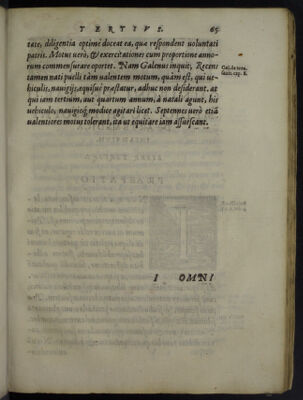 TERTIVS. 65
tate, diligentia optimè doceat ea, quæ respondent voluntati
patris. Motus uerò, & exercitationes cum proportione anno-
rum commensurare oportet. Nam Galenus inquit, Recens
tamen nati puelli tàm ualentem motum, quàm est, qui ue-
hiculis, nauigijs, equisue præstatur, adhuc non desiderant. at
qui iam tertium, aut quartum annum, à natali agunt, his
uehiculo, nauigioq́ modicè agitari licet. Septennes uerò etiã
ualentiores motus tolerant, ita ut equitare iam assuescant.
Gal. de tuen.
sanit. cap. 8.
I OMNI